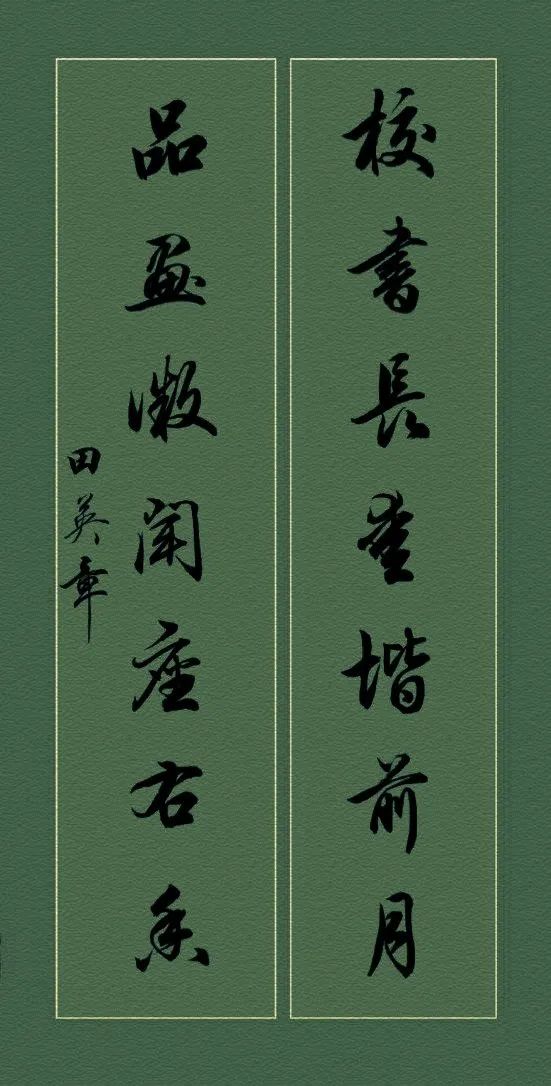 校書長愛堦前月
品畫微聞座右香
田英章